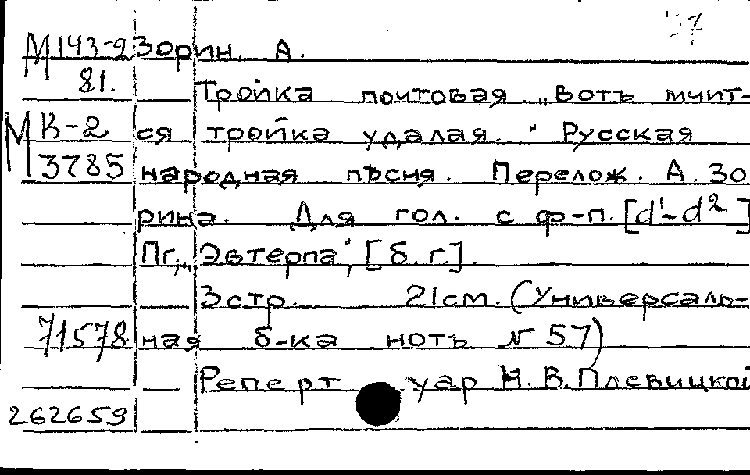 '37
М 143-2 Зорин, А.
81. Тройка почтовая „Вотъ мчит-
М В-2 ся тройка удалая." Русская
3785 народная пѣсня. Перелож. А. Зо
рина. Для гол. с ф-п. [d¹-d²]
Пг., „Эвтерпа", [б. г.].
3 стр. 21 см. (Универсаль-
71578 ная б-ка нотъ № 57)
Реперт уар Н. В. Плевицкой
262659